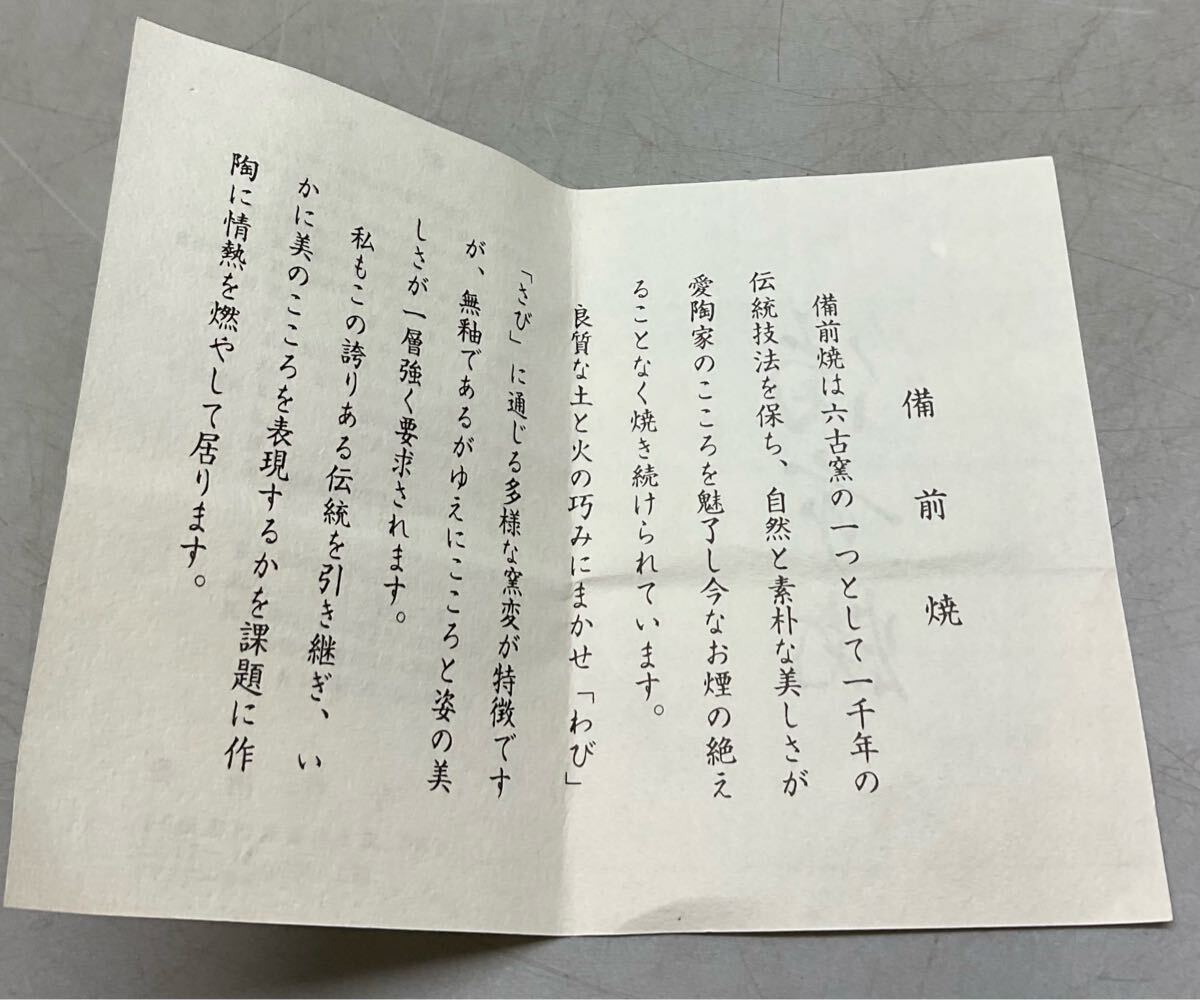 備前焼
備前焼は六古窯の一つとして一千年の
伝統技法を保ち、自然と素朴な美しさが
愛陶家のこころを魅了し今なお煙の絶え
ることなく焼き続けられています。
良質な土と火の巧みにまかせ「わび」
「さび」に通じる多様な窯変が特徴です
が、無釉であるがゆえにこころと姿の美
しさが一層強く要求されます。
私もこの誇りある伝統を引き継ぎ、い
かに美のこころを表現するかを課題に作
陶に情熱を燃やして居ります。